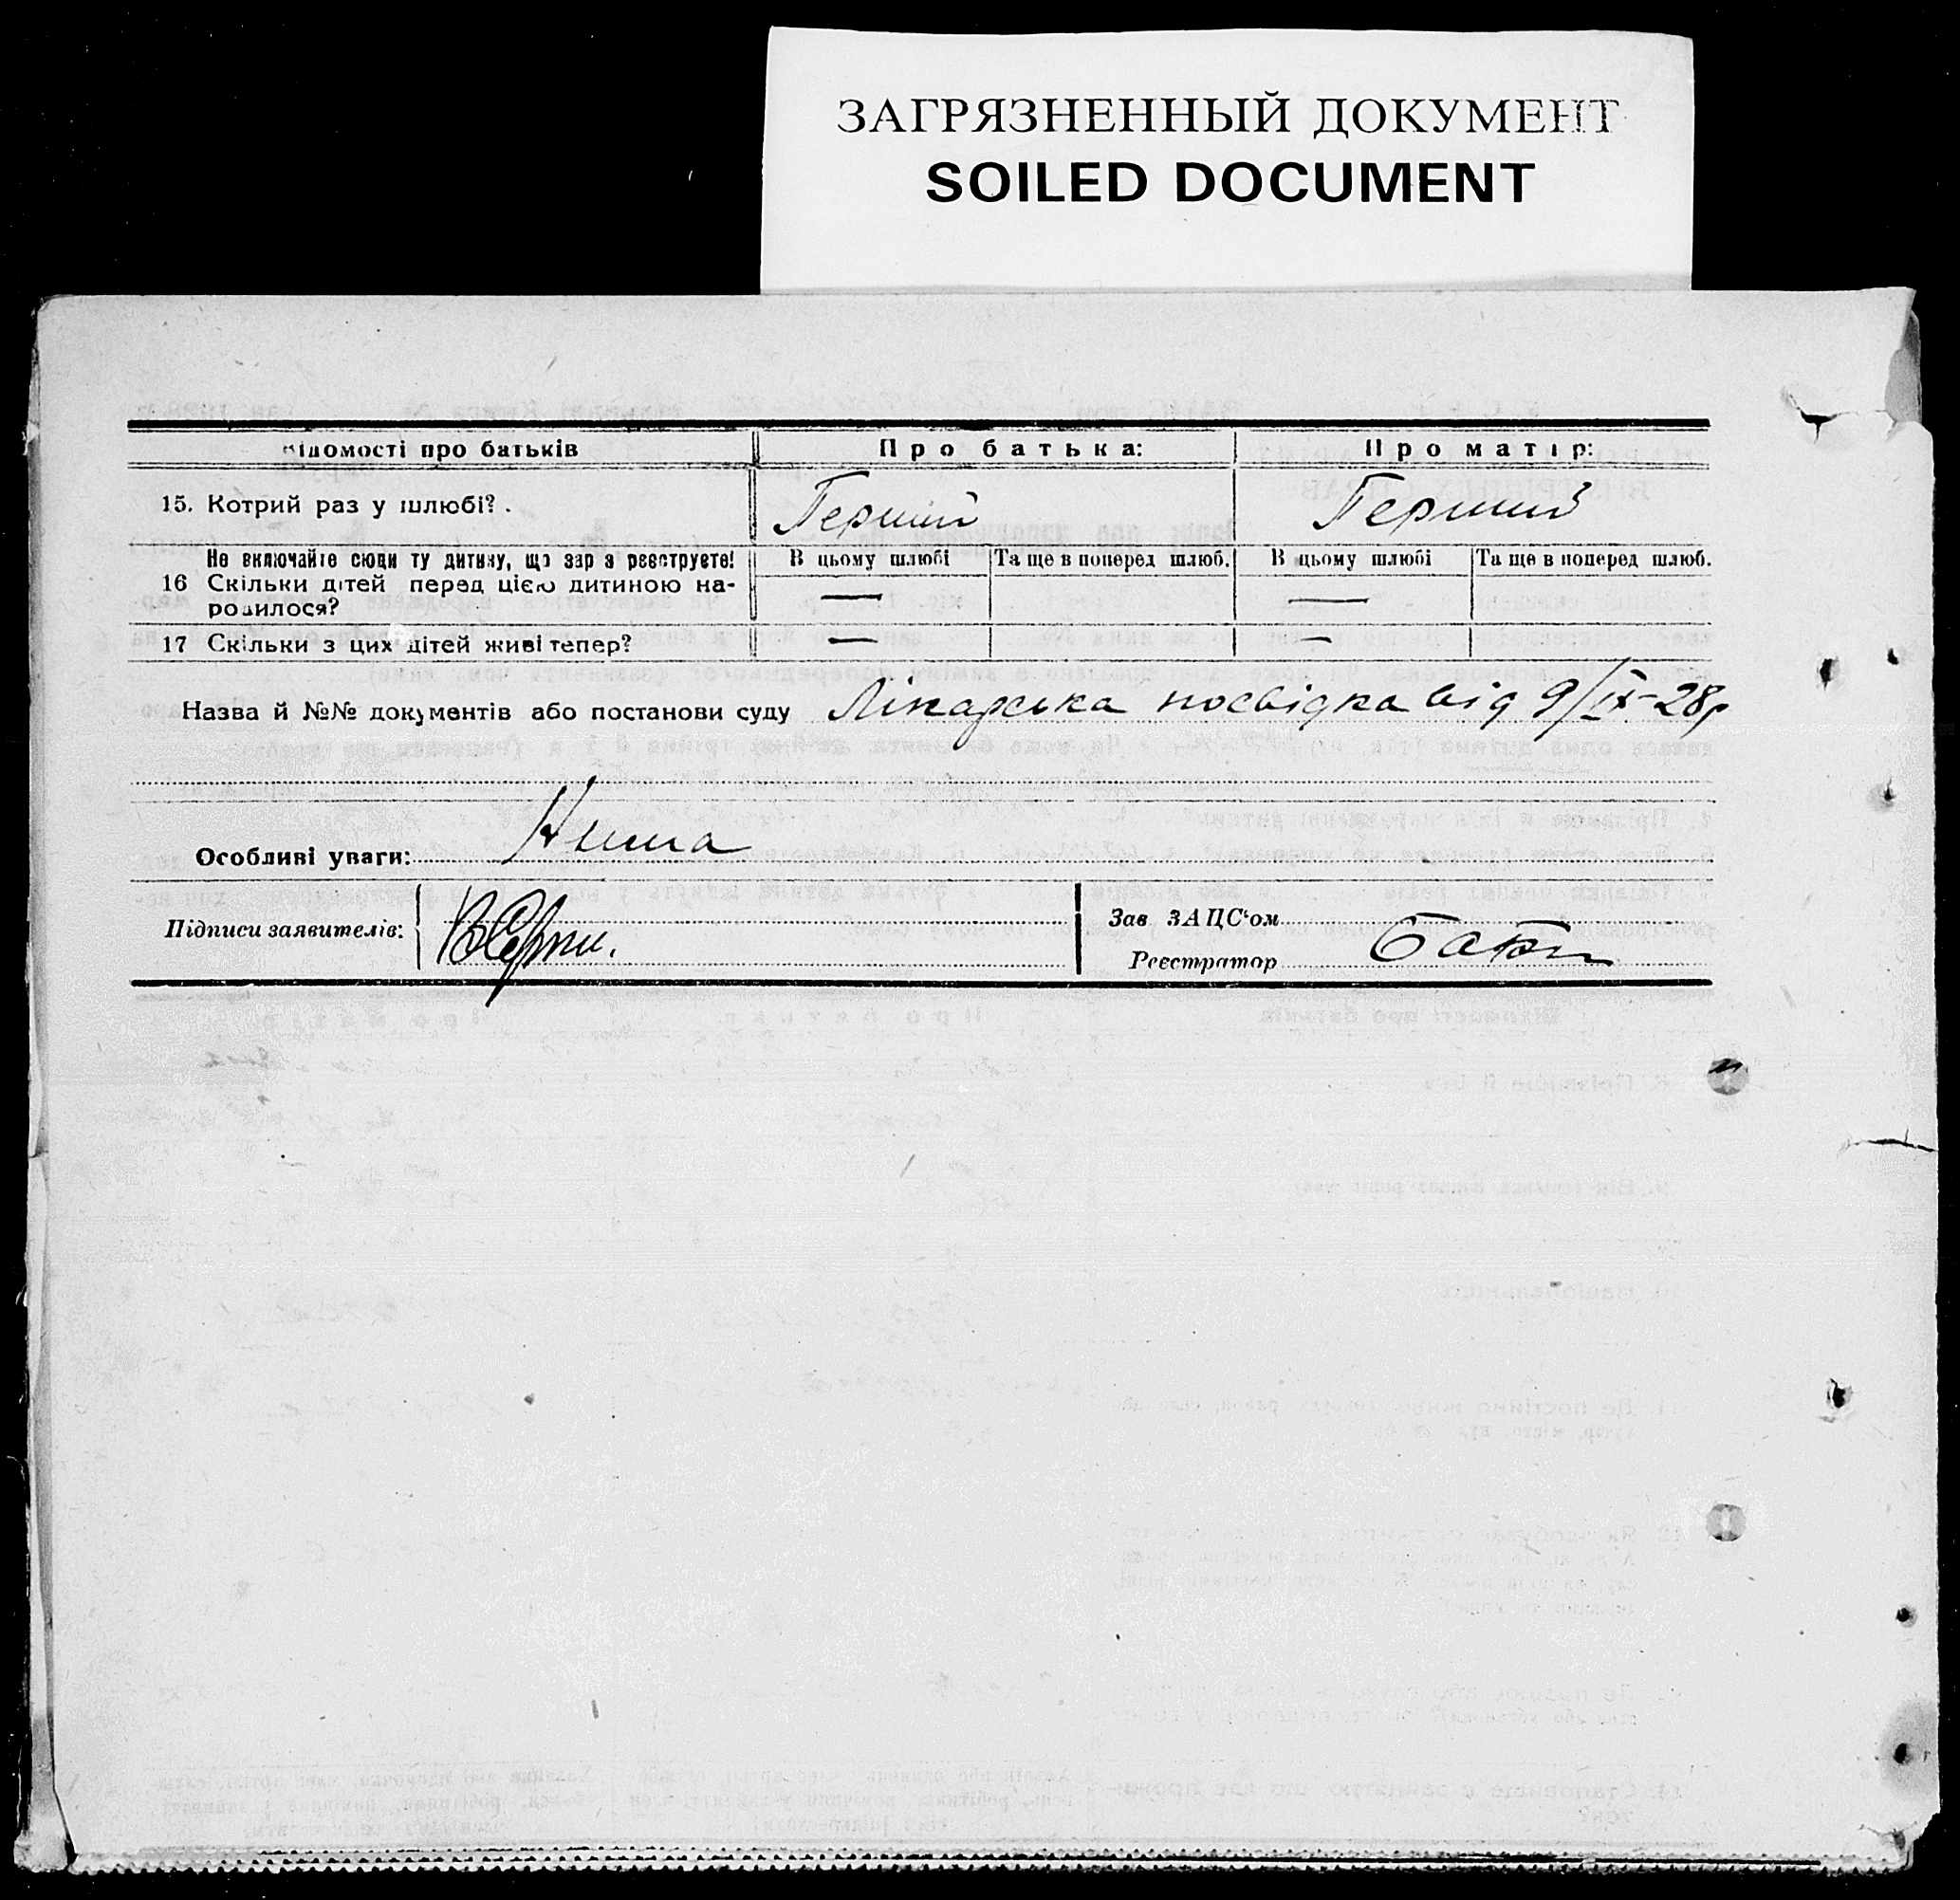 ЗАГРЯЗНЕННЫЙ ДОКУМЕНТ
SOILED DOCUMENT
ідомості про батьків
Про батька:
Про матір:
15. Котрий раз у шлюбі?.
Перший
Перший
Не включайте сюди ту дитину, що зараз реєструєте!
16 Скільки дітей перед цією дитиною на-
родилося?
В цьому шлюбі
Та ще в поперед шлюб.
В цьому шлюбі
Та ще в поперед шлюб.
—
—
17 Скільки з цих дітей живі тепер?
—
—
Назва й №№ документів або постанови суду Лікарська посвідка від 9/IX-28р
Особливі уваги:
Підписи заявителів:
Зав ЗАЦС'ом
Реєстратор